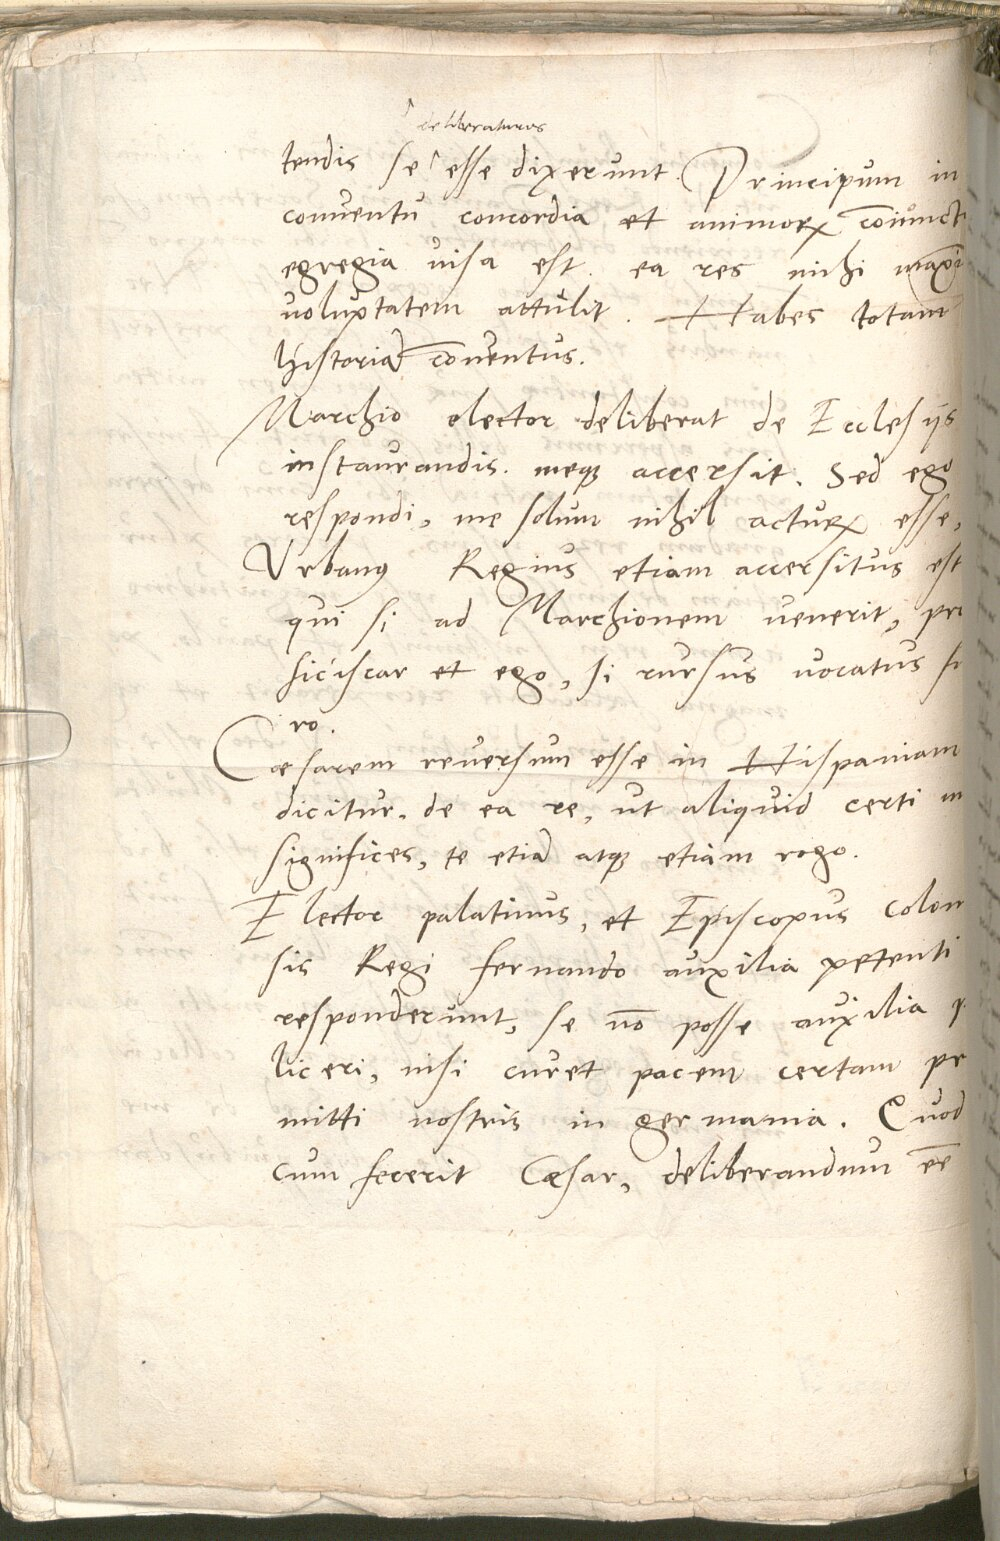 deliberaturos
tendis se esse dixerunt. Principum in
conventu concordia et animorꝝ cōiuncti
egregia visa est. ea res mihi maxi
voluptatem attulit. Habes totam
historiā conventus.
Marchio elector deliberat de Ecclesijs
instaurandis. meqꝫ accersit. Sed ego
respondi, me solum nihil acturꝝ esse,
Vrbanꝰ Regius etiam accersitus est
qui si ad Marchionem venerit, pro
ficiscar et ego, si rursus vocatus fu
ro.
Cæsarem reversum esse in Hispaniam
dicitur. de ea re, ut aliquid certi m
significes, te etiā atqꝫ etiam rogo.
Elector palatinus, et Episcopus colon
sis Regi fernando auxilia petenti
responderunt, se nō posse auxilia p
liceri, nisi curet pacem certam pr
mitti nostris in germania. Quod
cum fecerit Cæsar, deliberandum eē